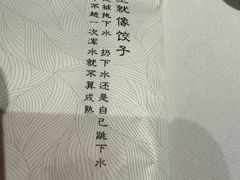 生就像饺子
被拖下水 扔下水还是自己跳下水
不趟一次浑水就不算成熟